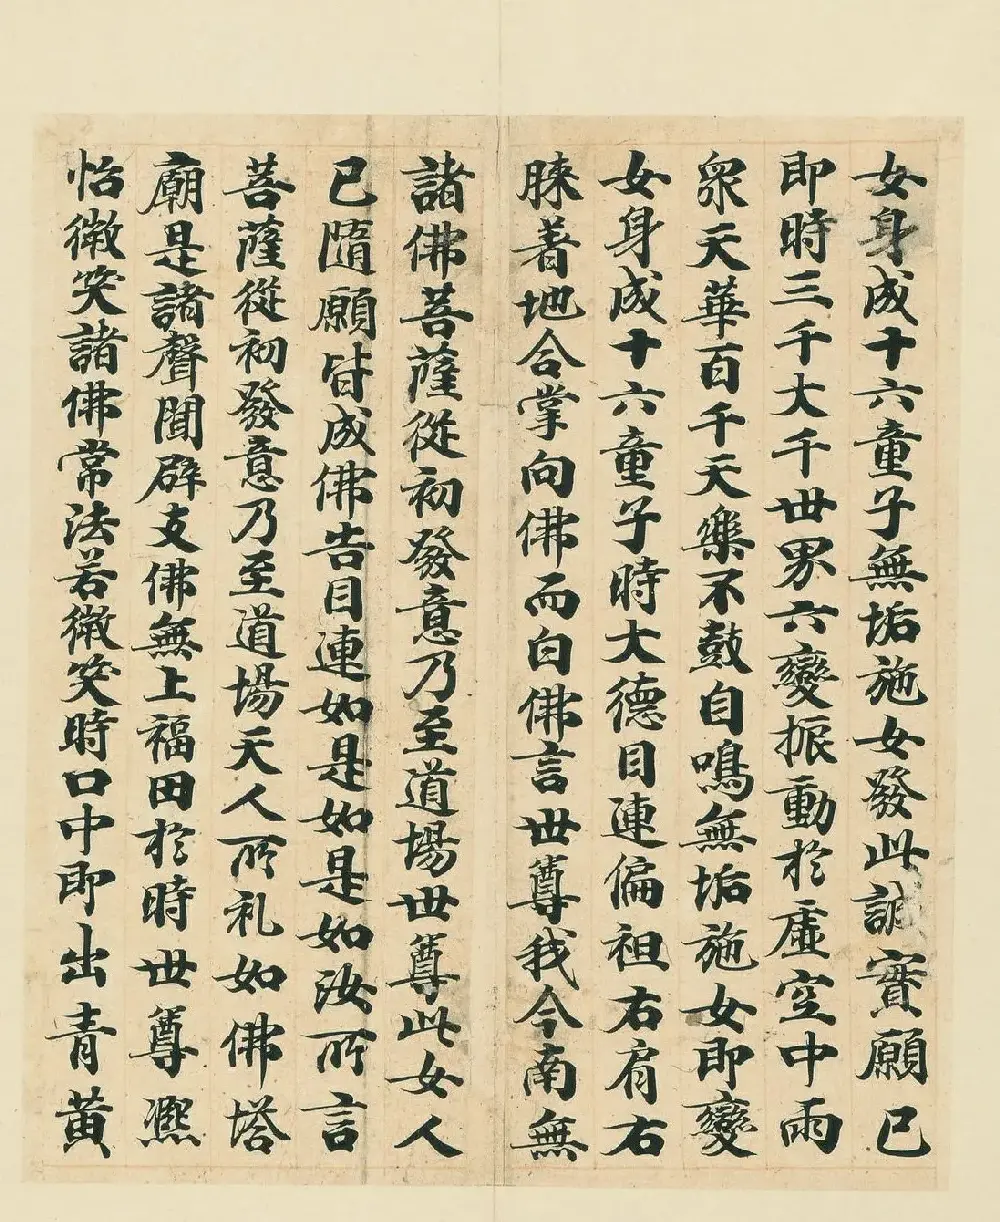 女身成十六童子無垢施女發此誠實願已
即時三千大千世界六變振動於虛空中雨
眾天華百千天樂不鼓自鳴無垢施女即變
女身成十六童子時大德目連偏袒右肩右
膝著地合掌向佛而白佛言世尊我今南無
諸佛菩薩從初發意乃至道場世尊此女人
已隨願皆成佛告目連如是如是如汝所言
菩薩從初發意乃至道場天人所礼如佛塔
廟是諸聲聞辟支佛無上福田於時世尊熈
怡微笑諸佛常法若微笑時口中即出青黃